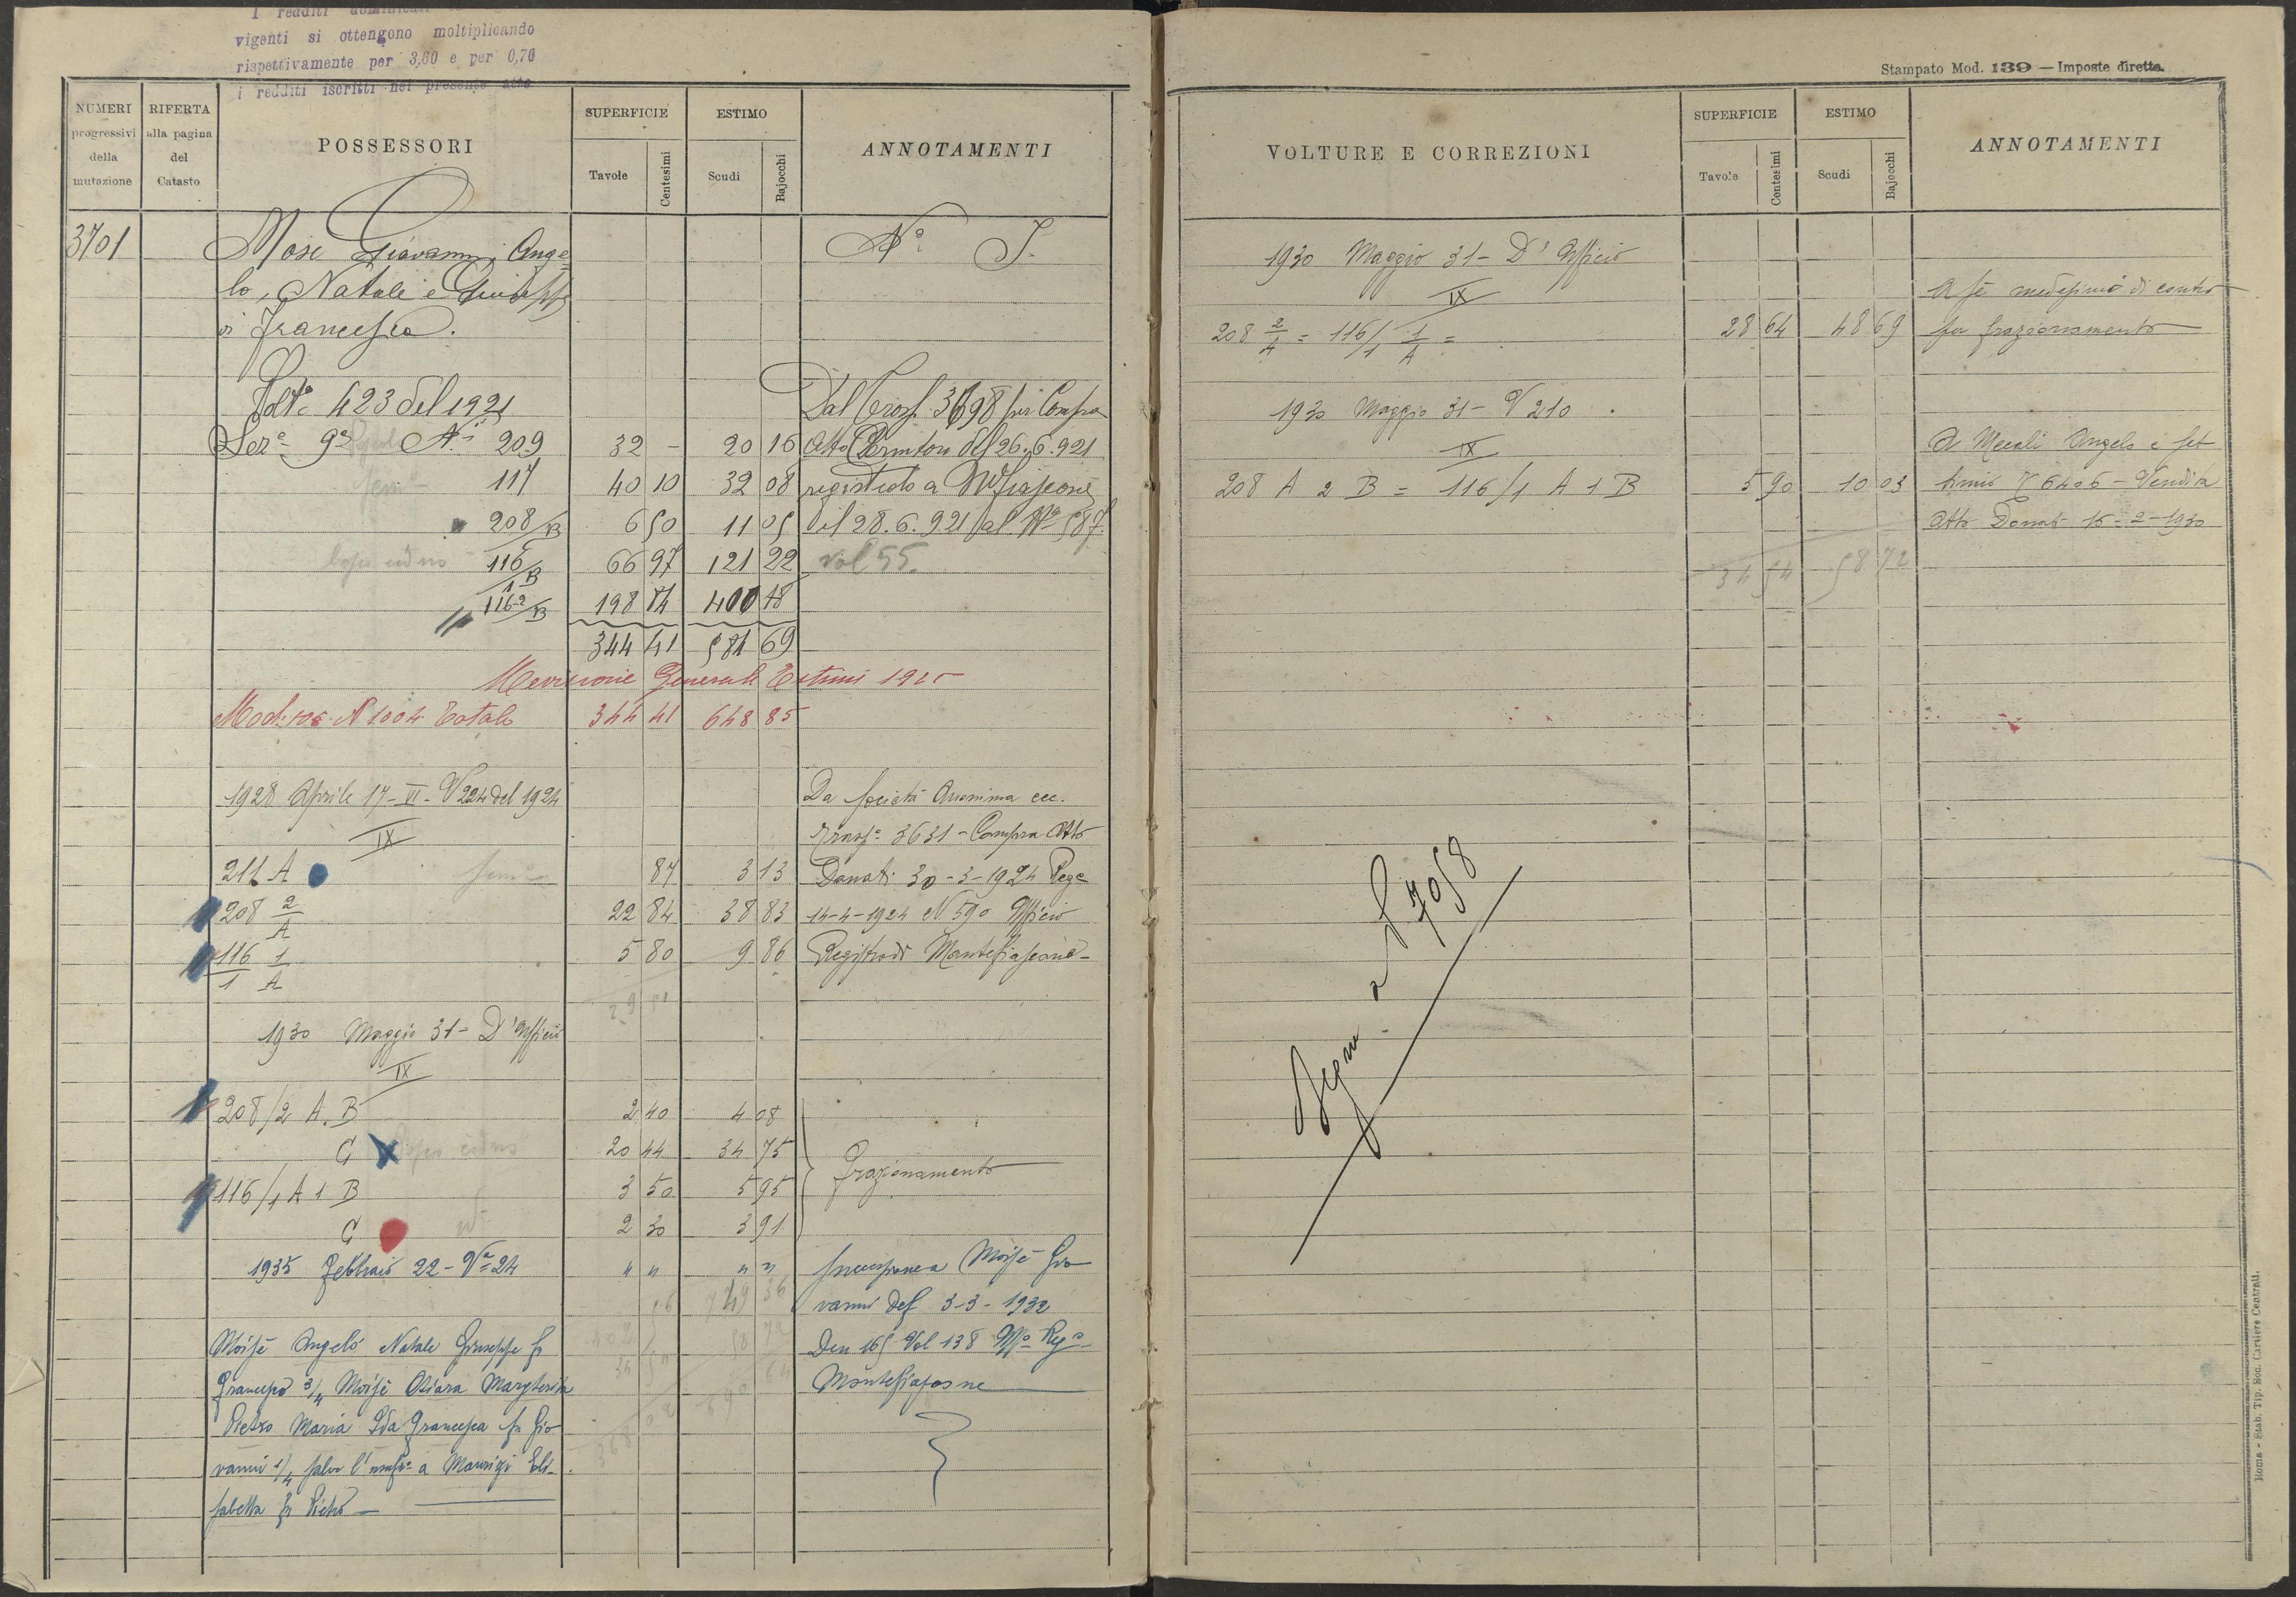 I redditi dominicali
vigenti si ottengono moltiplicando
rispettivamente per 3,60 e per 0,70
i redditi iscritti nel presente atto
NUMERI progressivi della mutazione
RIFERTA alla pagina del Catasto
POSSESSORI
SUPERFICIE
Tavole
Centesimi
ESTIMO
Scudi
Bajocchi
ANNOTAMENTI
3701 Mosè Giovanni, Ange= Nº I.
lo, Natale e Giuseppe
di Francesco.
Volt.ª 423 del 1921 Dal Trasp. 3698 per Compra
Sez.ª 9ª N.i 209 32 - 20 16 Atto del 26.6.921
117 40 10 32 08 registrato a Mfiascone
208/B 6 50 11 05 il 28.6.921 al Nº 587
116/1 B 66 97 121 22 vol 55
116-2/B 198 84 400 18
344 41 581 69
Revisione Generale Estimi 1925
Mod. N 1004 Totale 344 41 648 85
1928 Aprile 17-VI- V 224 del 1924 Da società Anonima ecc.
IX Trasp.º 3631 - Compra Atto
211 A 87 3 13 Donati 30-3-1924 Reg.
208 2/A 22 84 38 83 14-4-1924 N 590 Ufficio
116/1 1/A 5 80 9 86 Registro di Montefiascone-
29 51
1930 Maggio 31- D'Ufficio
IX
208/2 A. B 2 40 4 08
C 20 44 34 75
116/1 A 1 B 3 50 5 95 frazionamento
C 2 30 3 91
1935 Febbraio 22- Vª 24 " " " " Successione a Moisè Gio
vanni Def 3-3-1932
Moisè Angelo Natale Giuseppe fu Den 165 Vol 138 Uffº Regº
Francesco 3/4 Moisè Chiara Margherita Montefiascone
Pietro Maria Ida Francesca fu Gio
vanni 1/4 salvo l'usufº a Maurizi Eli-
sabetta fu Pietro
Stampato Mod. 139 — Imposte dirette.
VOLTURE E CORREZIONI
SUPERFICIE
Tavole
Centesimi
ESTIMO
Scudi
Bajocchi
ANNOTAMENTI
1930 Maggio 31- D'Ufficio
IX A sè medesimo di contro
208 2/A = 116/1 1/A = 28 64 48 69 per frazionamento
1930 Maggio 31- V 210
IX A Mecali Angelo e Set
208 A 2 B = 116/1 A 1 B 5 90 10 03 timio T 6406 - Vendita
Atto Donati 15-2-1930
34 54 58 72
Segue a P 7058
Roma - Stab. Tip. Soc. Cartiere Centrali.